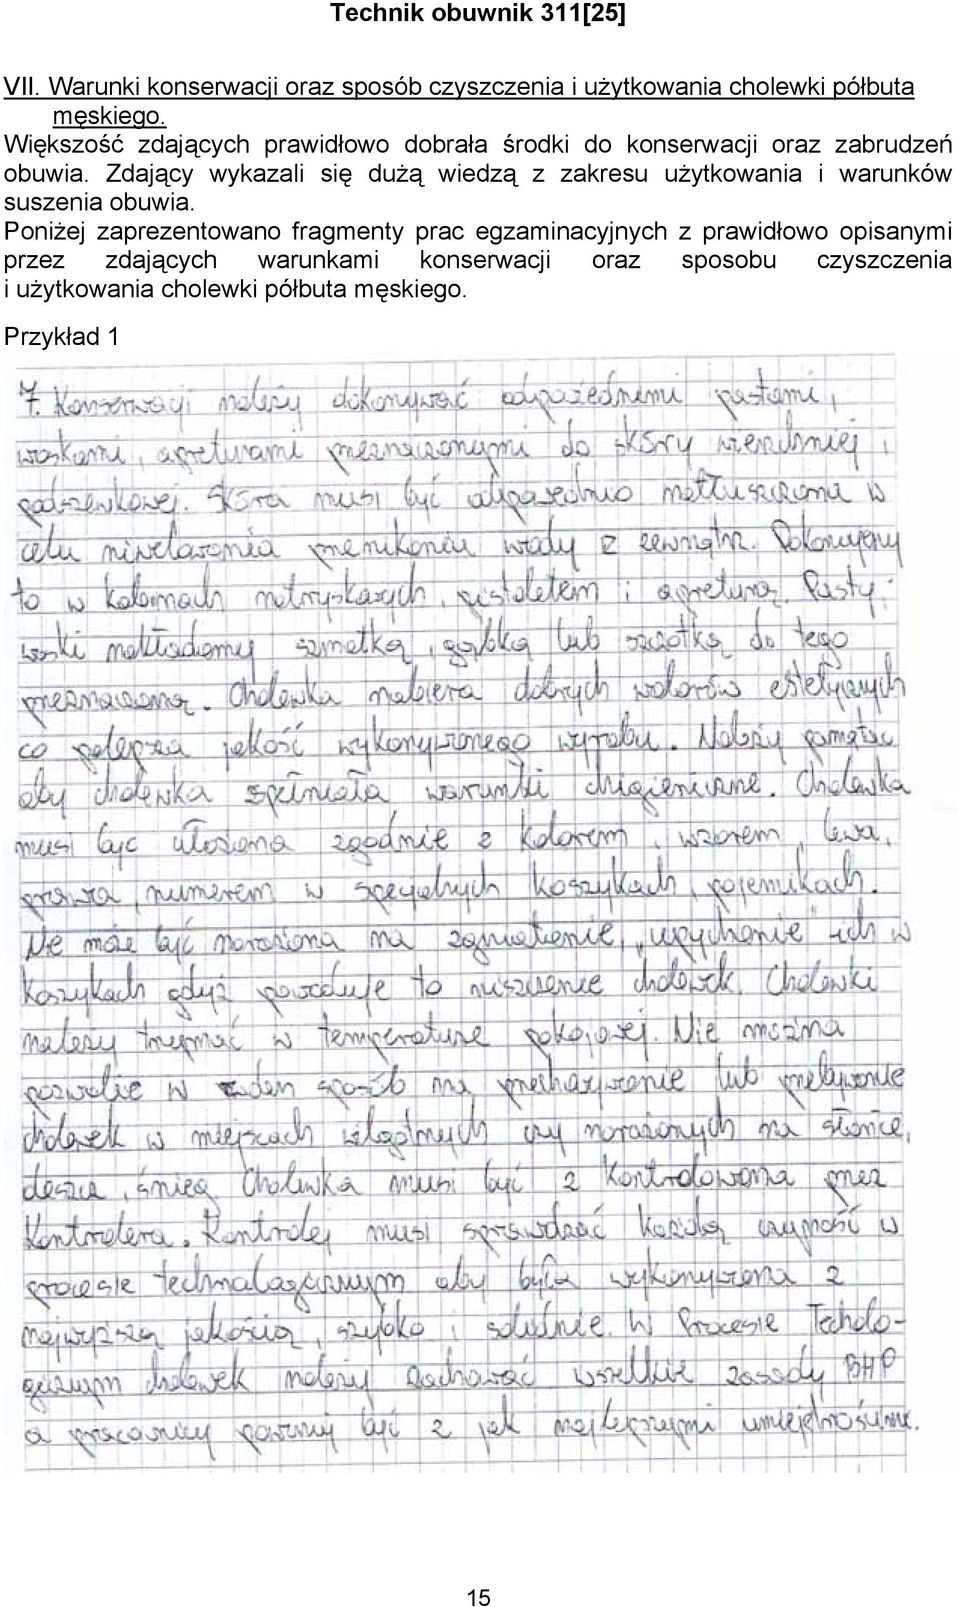 Technik obuwnik 311[25]
VII. Warunki konserwacji oraz sposób czyszczenia i użytkowania cholewki półbuta
męskiego.
Większość zdających prawidłowo dobrała środki do konserwacji oraz zabrudzeń
obuwia. Zdający wykazali się dużą wiedzą z zakresu użytkowania i warunków
suszenia obuwia.
Poniżej zaprezentowano fragmenty prac egzaminacyjnych z prawidłowo opisanymi
przez zdających warunkami konserwacji oraz sposobu czyszczenia
i użytkowania cholewki półbuta męskiego.
Przykład 1
7. Konserwacji należy dokonywać odpożednimi pastami,
woskami, apreturami przeznaczonymi do skóry wierzchniej i
podszewkowej. Skóra musi być odpowiednio natłuszczona w
celu niwelowania przenikaniu wody z zewnątrz. Dokonujemy
to w kabinach natryskowych, pistoletem i apreturą. Pasty i
woski nakładamy szmatką, gąbką lub szczotką do tego
przeznaczoną. Cholewka nabiera dobrych walorów estetycznych
co polepsza jakość wykonywanego wyrobu. Należy pamętać
aby cholewka spełniała warunki chigieniczne. Cholewka
musi być ułożona zgodnie z kolorem, wzorem, lewa,
prawa, numerem w specjalnych koszykach, pojemnikach.
Nie może być narażona na zgniatienie, „wpychanie" ich w
koszykach gdyż powoduje to niszczenie cholewek. Cholewki
należy trzymać w temperaturze pokojowej. Nie można
pozwolić w żden sposób na przeharzwienie lub przebywanie
cholewek w miejscach wilgotnych czy narażonych na słońce,
deszcz, śnieg. Cholewka musi być z kontrolowana przez
kontrolera. Kontroler musi sprawdzać każdą czyność w
procesie technologicznym aby była wykonywana z
najwyższą jakością, szybko i solidnie. W Procesie Techolo-
gicznym cholewek należy zachować wszelkie zasady BHP
a pracownicy powinny być z jak najlepszymi umiejętnościami.
15